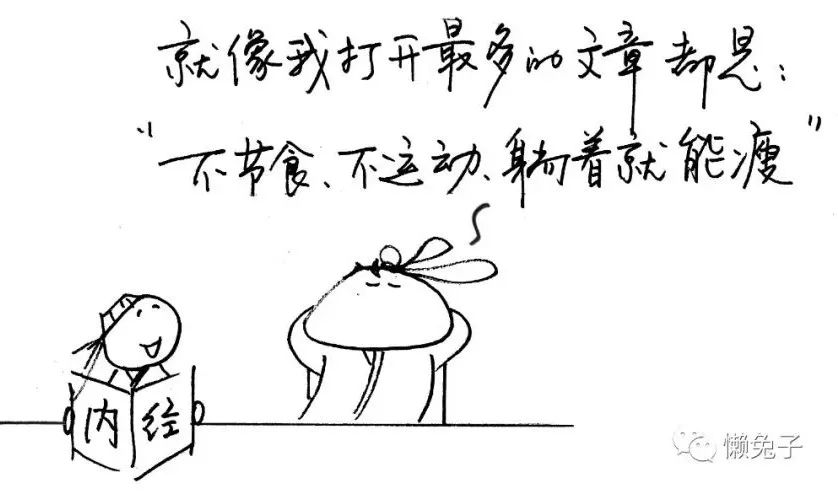 就像我打开最多的文章都是：
“不节食、不运动、躺着就能瘦”
内经
懒兔子